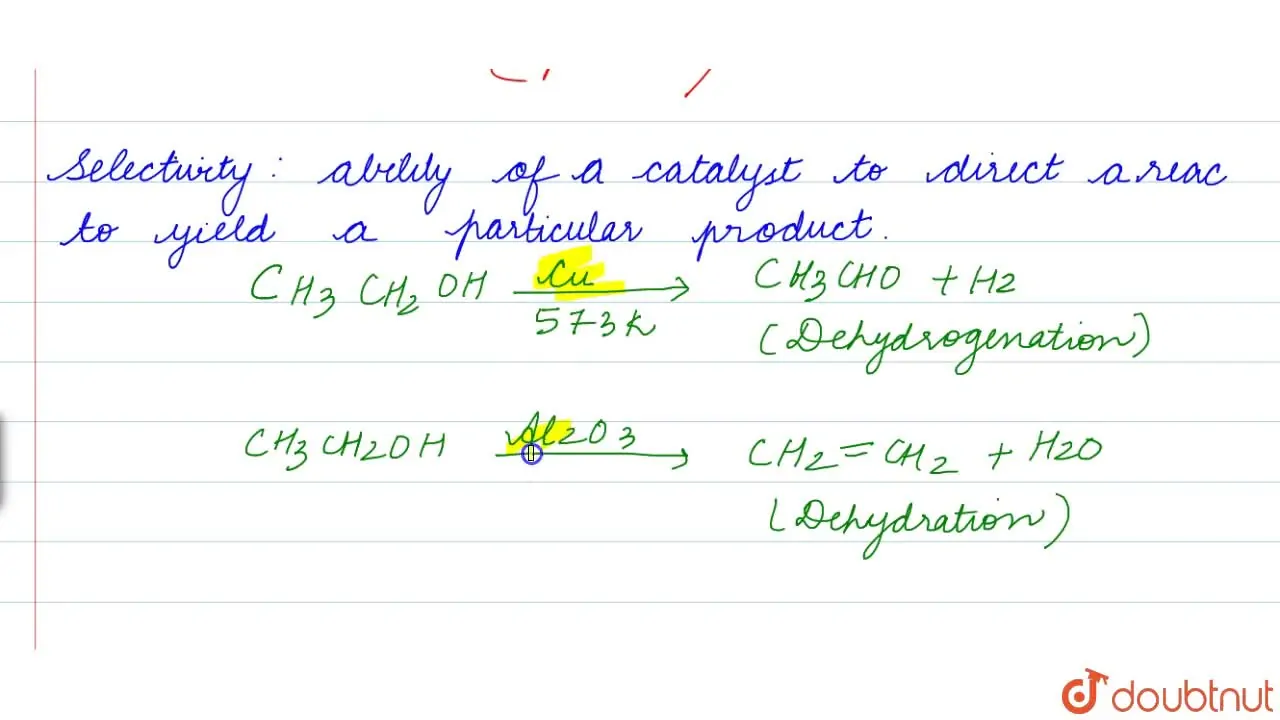 Selectivity: ability of a catalyst to direct a reac
to yield a particular product.
CH3 CH2 OH Cu 573K → CH3CHO + H2
(Dehydrogenation)
CH3CH2OH Al2O3 → CH2=CH2 + H2O
(Dehydration)
doubtnut